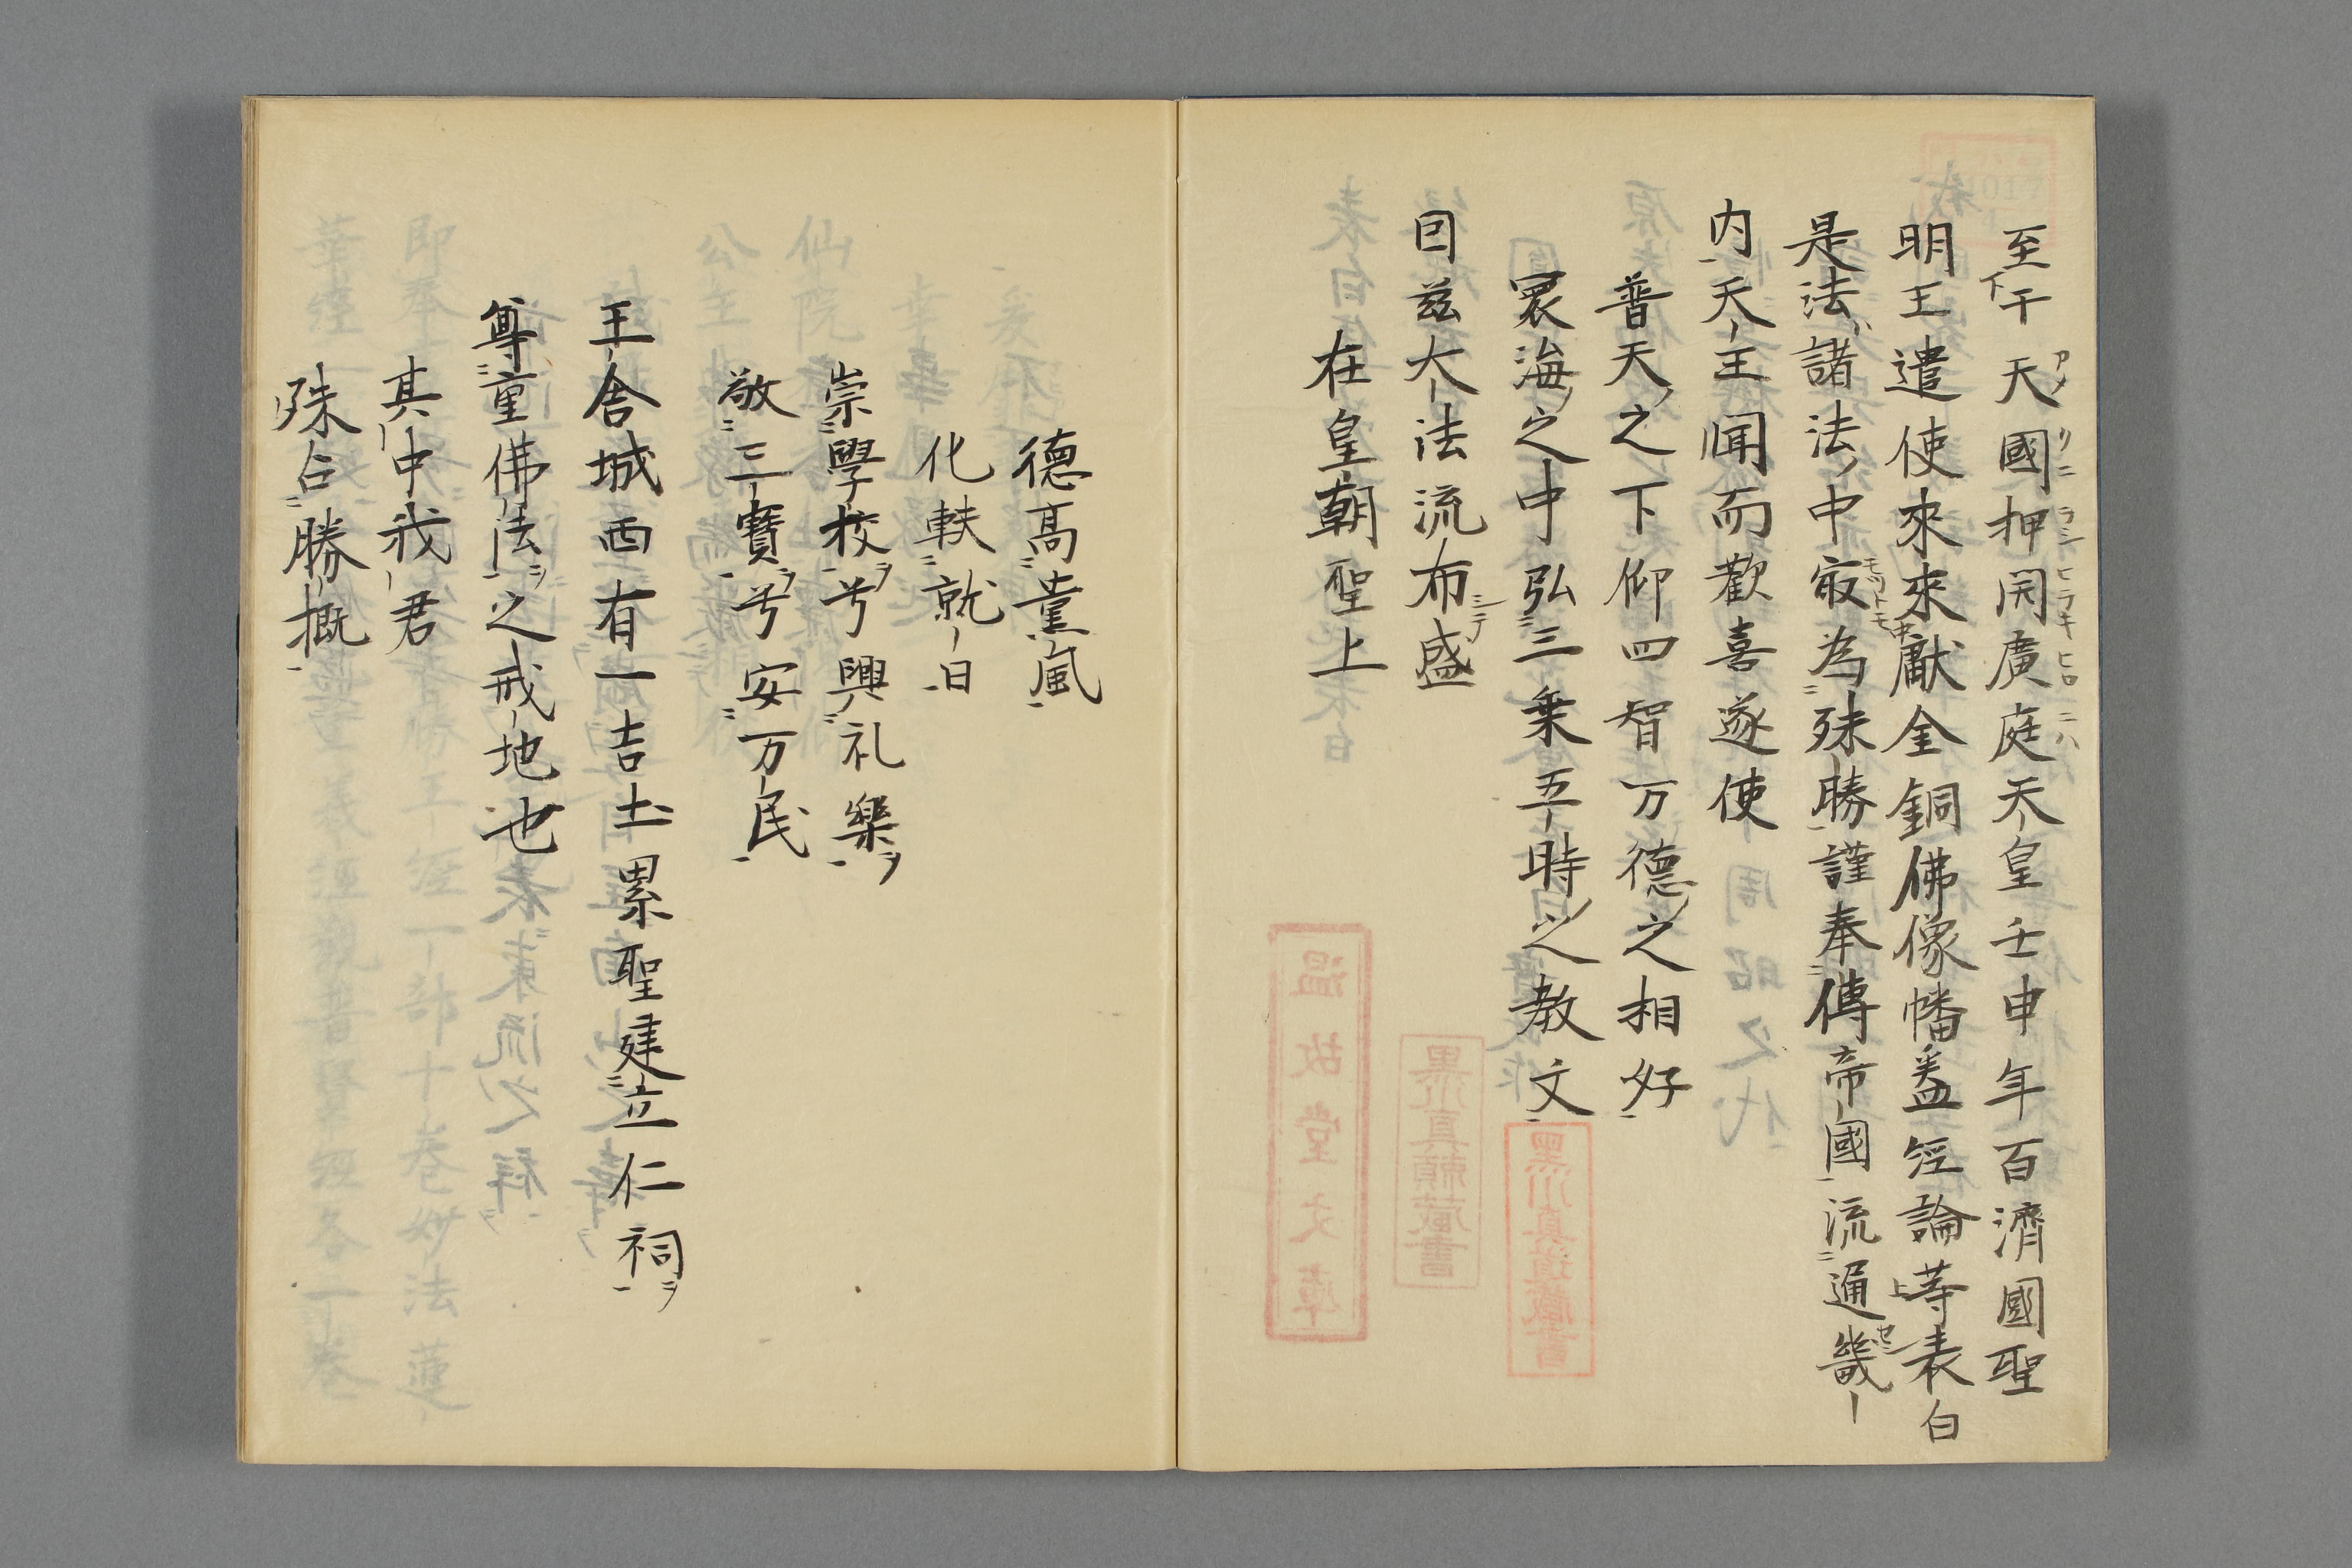 至于天國押開廣庭天皇壬申年百濟國聖
明王遣使來來獻金銅佛像幡盖経論等表白
是法諸法中㝡為殊勝謹奉傳帝國流通畿
内天王聞而歡喜遂使
普天之下仰四智万德之相好
寰海之中弘三乗五時之教文
囙茲大法流布盛
在皇朝聖上
德高薫風
化軼就日
崇學校兮興礼樂
敬三寶兮安万民
王舎城西有一吉土累聖建立仁祠
尊重佛法之戒地也
其中我君
殊占勝概
温故堂文庫
黒川真頼蔵書
黒川真道蔵書